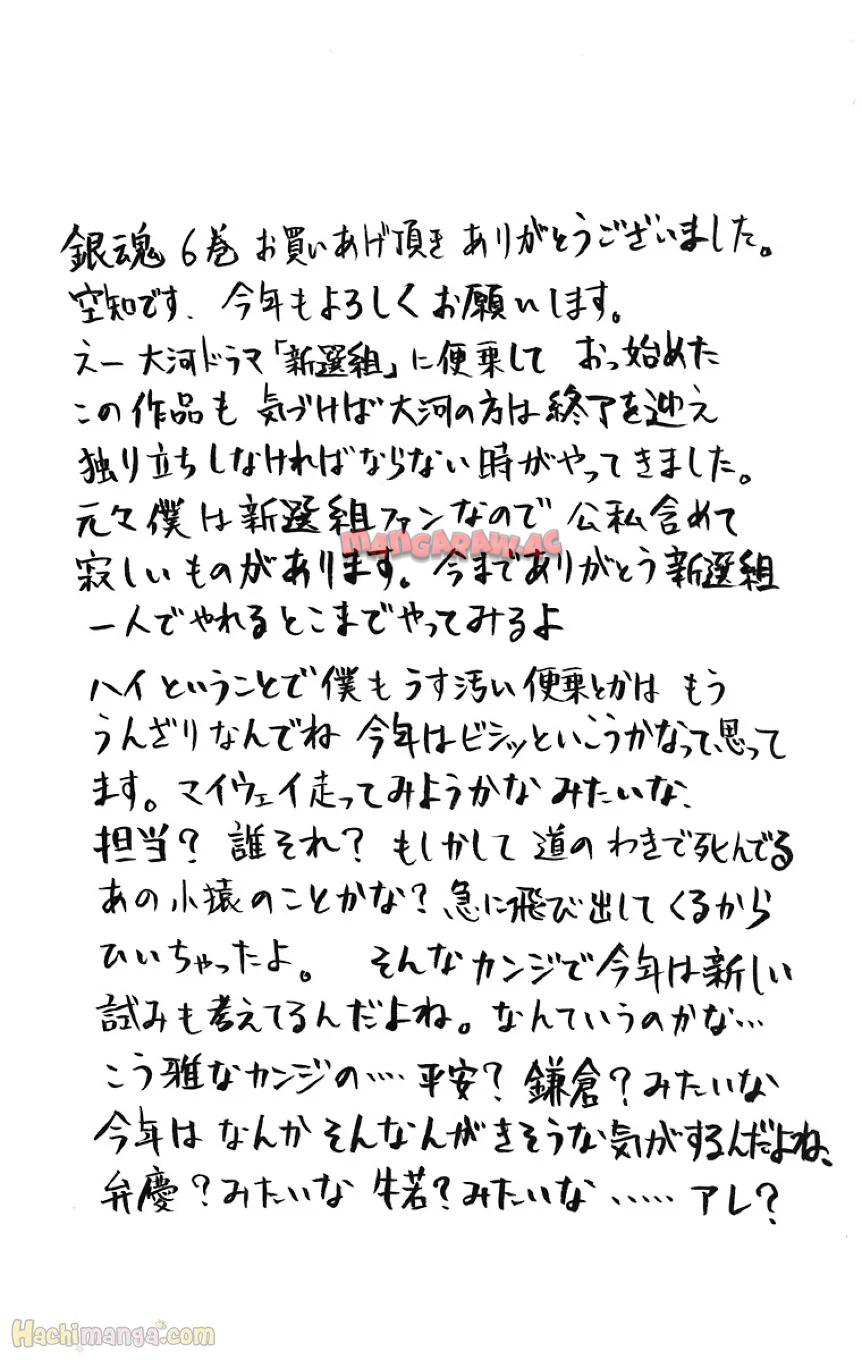 銀魂 6巻 お買いあげ頂き ありがとうございました。
空知です、今年もよろしくお願いします。
えー 大河ドラマ「新選組」に便乗して おっ始めた
この作品も 気づけば大河の方は終了を迎え
独り立ちしなければならない時がやってきました。
元々僕は新選組ファンなので 公私含めて
MANGARAW.AC
寂しいものがあります。今までありがとう新選組
一人でやれるとこまでやってみるよ
ハイということで僕もうす汚い便乗とかは もう
うんざりなんでね 今年はビシッといこうかなって、思って
ます。マイウェイ走ってみようかな みたいな、
担当？ 誰それ？ もしかして 道のわきで死んでる
あの小猿のことかな？急に飛び出してくるから
ひいちゃったよ。 そんなカンジで今年は新しい
試みも考えてるんだよね。なんていうのかな…
こう雅なカンジの…. 平安？ 鎌倉？みたいな
今年は なんか そんなんがきそうな気がするんだよね、
弁慶？みたいな 牛若？みたいな …… アレ？
Hachimanga.com